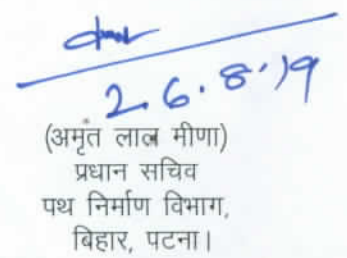 26.8.19
(अमृत लाल मीणा)
प्रधान सचिव
पथ निर्माण विभाग,
बिहार, पटना।